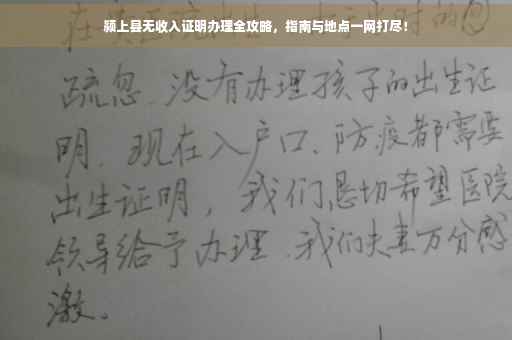 颍上县无收入证明办理全攻略，指南与地点一网打尽！
疏忽.没有办理孩子的出生证
明.现在入户口、防疫都需要
出生证明，我们恳切希望医院
领导给予办理.我们夫妻万分感
激。